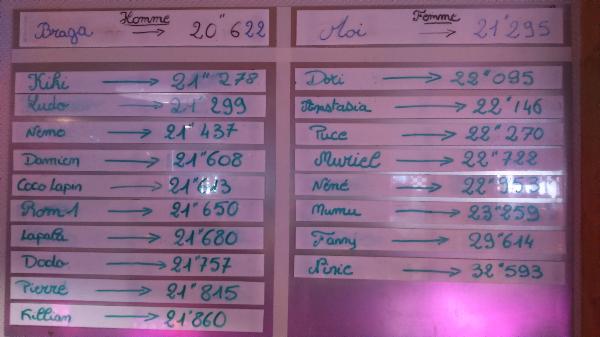 Homme
Braga → 20"622
Kiki → 21"278
Ludo → 21"299
Nemo → 21"437
Damien → 21"608
Coco Lapin → 21"613
Rom1 → 21"650
Lapala → 21"680
Dodo → 21"757
Pierre → 21"815
Killian → 21"860
Femme
Moi → 21"295
Dori → 22"095
Anastasia → 22"146
Puce → 22"270
Muriel → 22"722
Néné → 22"953
Mumu → 23"259
Fanny → 29"614
→ 32"593